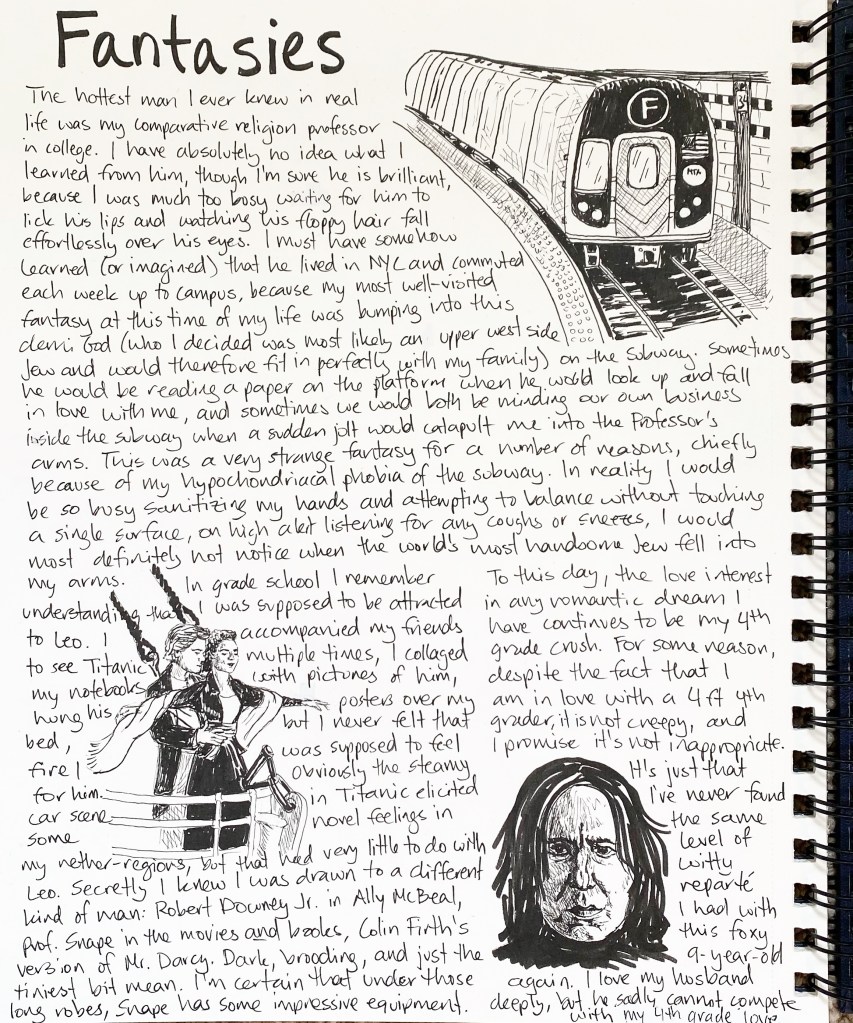 Fantasies
The hottest man I ever knew in real
life was my comparative religion professor
in college. I have absolutely no idea what I
learned from him, though I'm sure he is brilliant,
because I was much too busy waiting for him to
lick his lips and watching his floppy hair fall
effortlessly over his eyes. I must have somehow
learned (or imagined) that he lived in NYC and commuted
each week up to campus, because my most well-visited
fantasy at this time of my life was bumping into this
demi God (who I decided was most likely an upper west side
Jew and would therefore fit in perfectly with my family) on the subway. Sometimes
he would be reading a paper on the platform when he would look up and fall
in love with me, and sometimes we would both be minding our own business
inside the subway when a sudden jolt would catapult me into the Professor's
arms. This was a very strange fantasy for a number of reasons, chiefly
because of my hypochondriacal phobia of the subway. In reality I would
be so busy sanitizing my hands and attempting to balance without touching
a single surface, on high alert listening for any coughs or sneezes, I would
most definitely not notice when the world's most handsome Jew fell into
my arms.
F
34
MTA
In grade school I remember
understanding that I was supposed to be attracted
to Leo. I accompanied my friends
to see Titanic multiple times, I collaged
my notebooks with pictures of him,
hung his posters over my
bed, but I never felt that
fire I was supposed to feel
for him. Obviously the steamy
car scene in Titanic elicited
some novel feelings in
my nether-regions, but that had very little to do with
Leo. Secretly I knew I was drawn to a different
kind of man: Robert Downey Jr. in Ally McBeal,
Prof. Snape in the movies and books, Colin Firth's
version of Mr. Darcy. Dark, brooding, and just the
tiniest bit mean. I'm certain that under those
long robes, Snape has some impressive equipment.
To this day, the love interest
in any romantic dream I
have continues to be my 4th
grade crush. For some reason,
despite the fact that I
am in love with a 4 ft 4th
grader, it is not creepy, and
I promise it's not inappropriate.
It's just that
I've never found
the same
level of
witty
reparté
I had with
this foxy
9-year-old
again. I love my husband
deeply, but he sadly cannot compete
with my 4th grade love